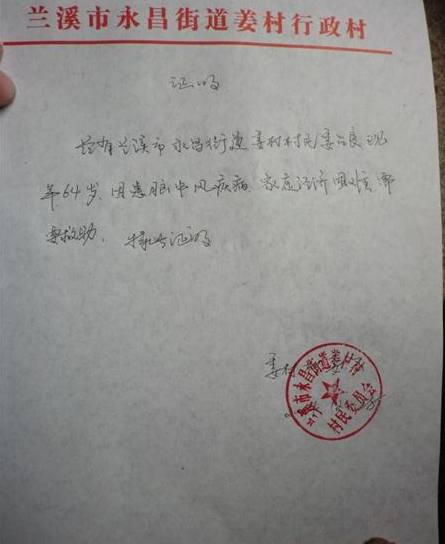 兰溪市永昌街道姜村行政村
证明
兹有兰溪市永昌街道姜村村民姜 良现
年64岁、因患脑中风疾病、家庭经济困难、需
要救助、特此证明
姜村
兰溪市永昌街道姜村村
村民委员会